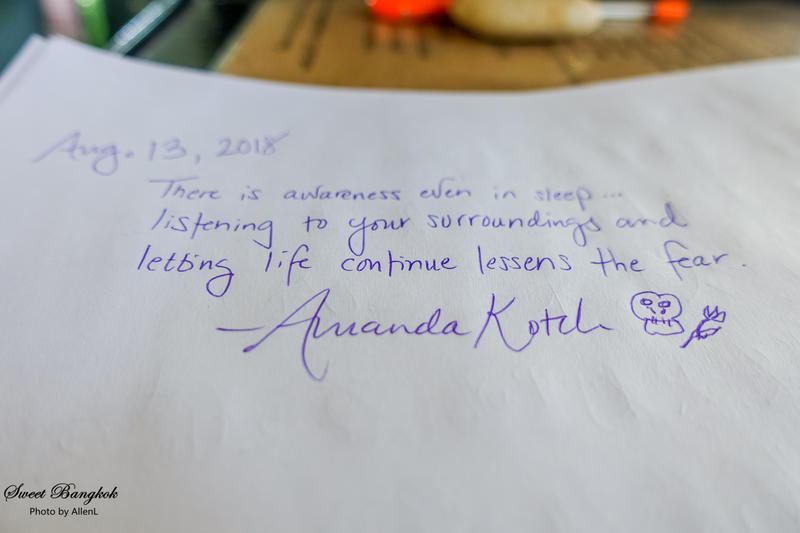 Aug. 13, 2018
There is awareness even in sleep...
listening to your surroundings and
letting life continue lessens the fear.
—Amanda Kotch
Sweet Bangkok
Photo by AllenL